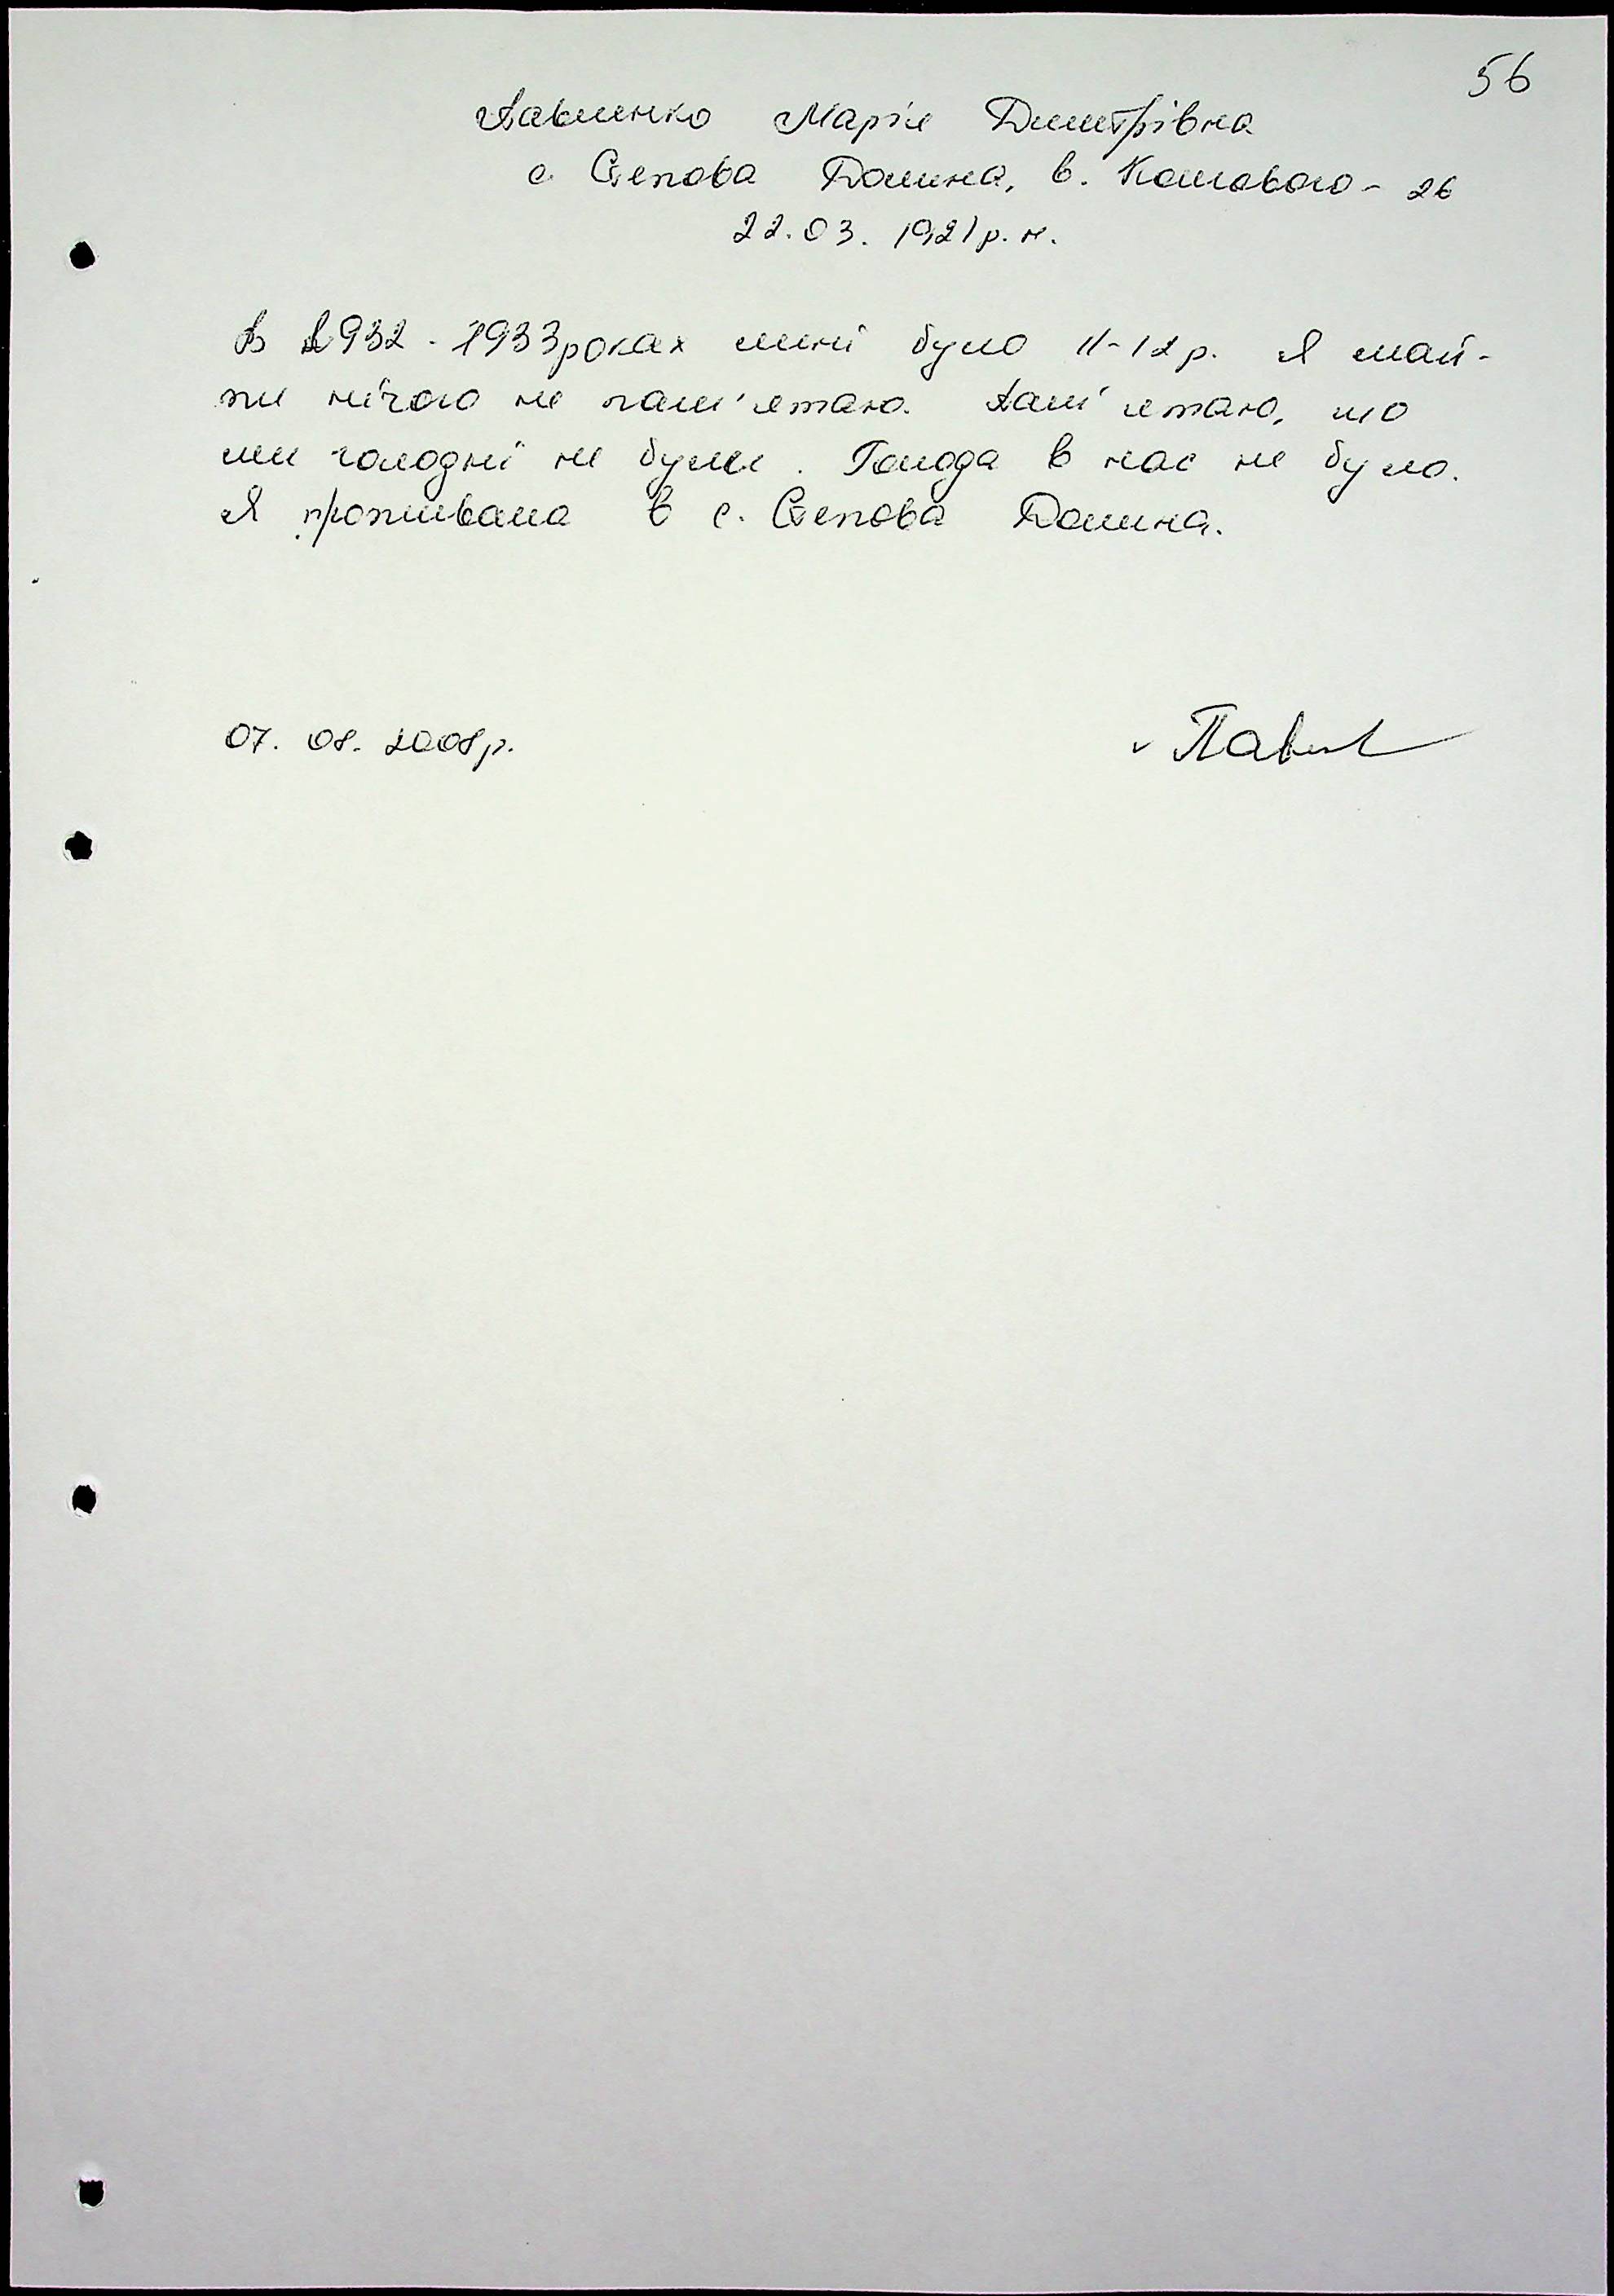 56
Павленко Марія Дмитрівна
с. Степова Долина, в. Кошового - 26
22.03.1921 р.н.
В 1932-1933 роках мені було 11-12 р. Я май-
же нічого не пам'ятаю. Пам'ятаю, що
ми голодні не були. Голода в нас не було.
Я проживала в с. Степова Долина.
07. 08. 2008 р.
Павл